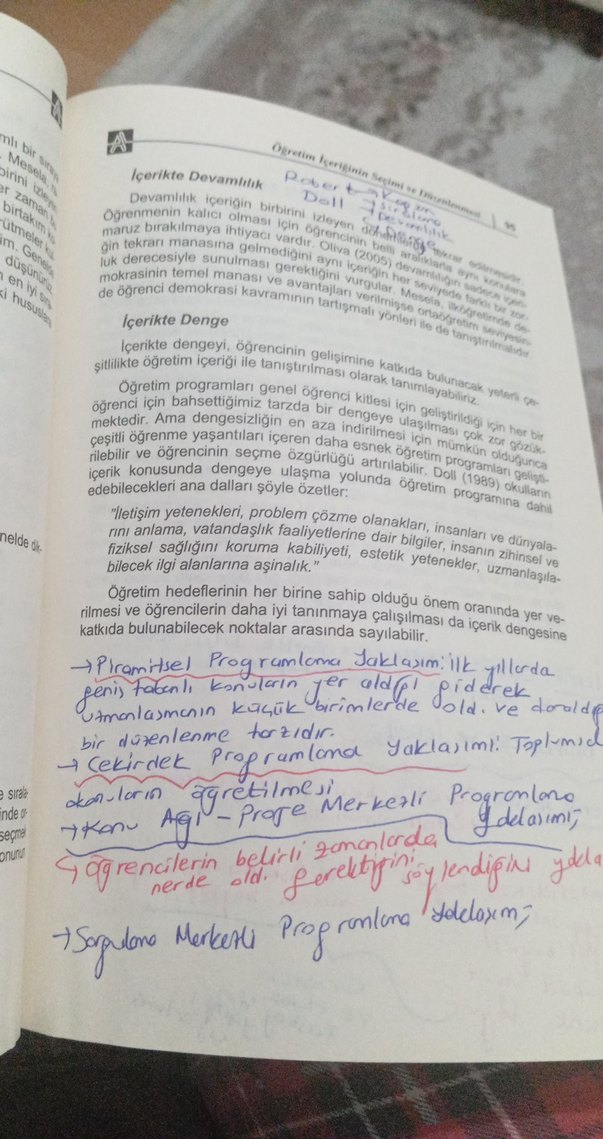 Öğretim İçeriğinin Seçimi ve Düzenlenmesi | 95
İçerikte Devamlılık
Doll
Devamlılık
Denge
Devamlılık içeriğin birbirini izleyen dönemlerde tekrar edilmesidir.
Öğrenmenin kalıcı olması için öğrencinin belli aralıklarla aynı konulara
maruz bırakılmaya ihtiyacı vardır. Oliva (2005) devamlılığın sadece içeri-
ğin tekrarı manasına gelmediğini aynı içeriğin her seviyede farklı bir zor-
luk derecesiyle sunulması gerektiğini vurgular. Mesela, ilköğretimde de-
mokrasinin temel manası ve avantajları verilmişse ortaöğretim seviyesin-
de öğrenci demokrasi kavramının tartışmalı yönleri ile de tanıştırılmalıdır.
İçerikte Denge
İçerikte dengeyi, öğrencinin gelişimine katkıda bulunacak yeterli çe-
şitlilikte öğretim içeriği ile tanıştırılması olarak tanımlayabiliriz.
Öğretim programları genel öğrenci kitlesi için geliştirildiği için her bir
öğrenci için bahsettiğimiz tarzda bir dengeye ulaşılması çok zor gözük-
mektedir. Ama dengesizliğin en aza indirilmesi için mümkün olduğunca
çeşitli öğrenme yaşantıları içeren daha esnek öğretim programları gelişti-
rilebilir ve öğrencinin seçme özgürlüğü artırılabilir. Doll (1989) okulların
içerik konusunda dengeye ulaşma yolunda öğretim programına dahil
edebilecekleri ana dalları şöyle özetler:
"İletişim yetenekleri, problem çözme olanakları, insanları ve dünyala-
rını anlama, vatandaşlık faaliyetlerine dair bilgiler, insanın zihinsel ve
fiziksel sağlığını koruma kabiliyeti, estetik yetenekler, uzmanlaşıla-
bilecek ilgi alanlarına aşinalık."
Öğretim hedeflerinin her birine sahip olduğu önem oranında yer ve-
rilmesi ve öğrencilerin daha iyi tanınmaya çalışılması da içerik dengesine
katkıda bulunabilecek noktalar arasında sayılabilir.
→ Piramitsel Programlama Yaklaşımı: İlk yıllarda
geniş tabanlı konuların yer aldığı giderek
uzmanlaşmanın küçük birimlerde old. ve daraldığı
bir düzenlenme tarzıdır.
→ Çekirdek Programlama Yaklaşımı: Toplumsal
konuların öğretilmesi
→ Konu Ağı - Proje Merkezli Programlama
Yaklaşımı;
↳ Öğrencilerin belirli zamanlarda
nerde old. gerektiğini söylendiğini
→ Sorgulama Merkezli Programlama Yaklaşımı;